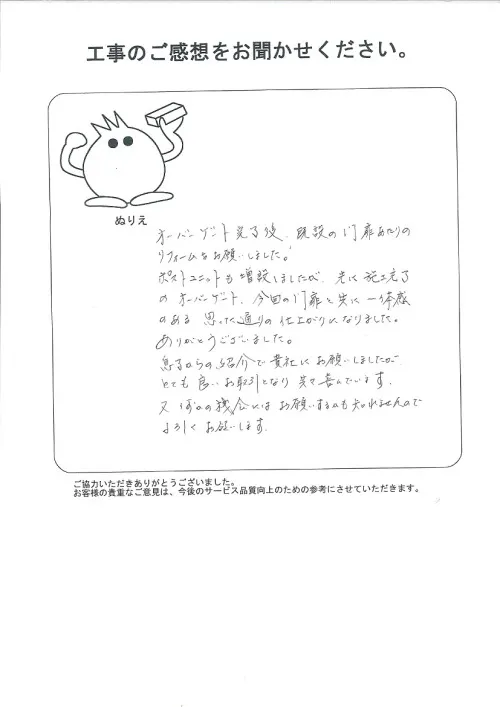 工事のご感想をお聞かせください。
ぬりえ
オーバーゲート完了後、既設の門扉あたりの
リフォームをお願いしました。
ポストユニットも増設しましたが、先に施工完了
のオーバーゲート、今回の門扉と共に一体感
のある思った通りの仕上がりになりました。
ありがとうございました。
息子からの紹介で貴社にお願いしましたが
とても良いお取引となり共々喜んでいます。
又何かの機会にはお願いするかも知れませんので
よろしくお願いします。
ご協力いただきありがとうございました。
お客様の貴重なご意見は、今後のサービス品質向上のための参考にさせていただきます。